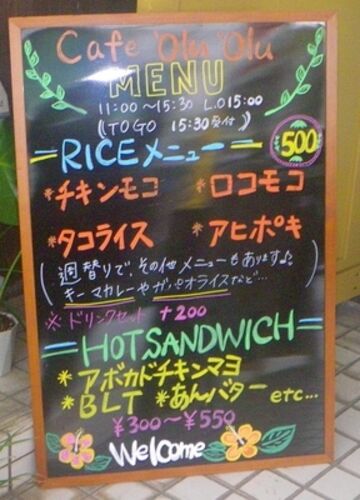 Cafe 'Olu 'Olu
MENU
11:00〜15:30 L.O15:00
(TOGO 15:30受付)
RICEメニュー 500
*チキンモコ *ロコモコ
*タコライス *アヒポキ
(週替りで、その他メニューもあります♪
キーマカレーやガパオライスなど…)
※ドリンクセット +200
HOT SANDWICH
*アボカドチキンマヨ
*BLT *あんバター etc...
¥300〜¥550
Welcome